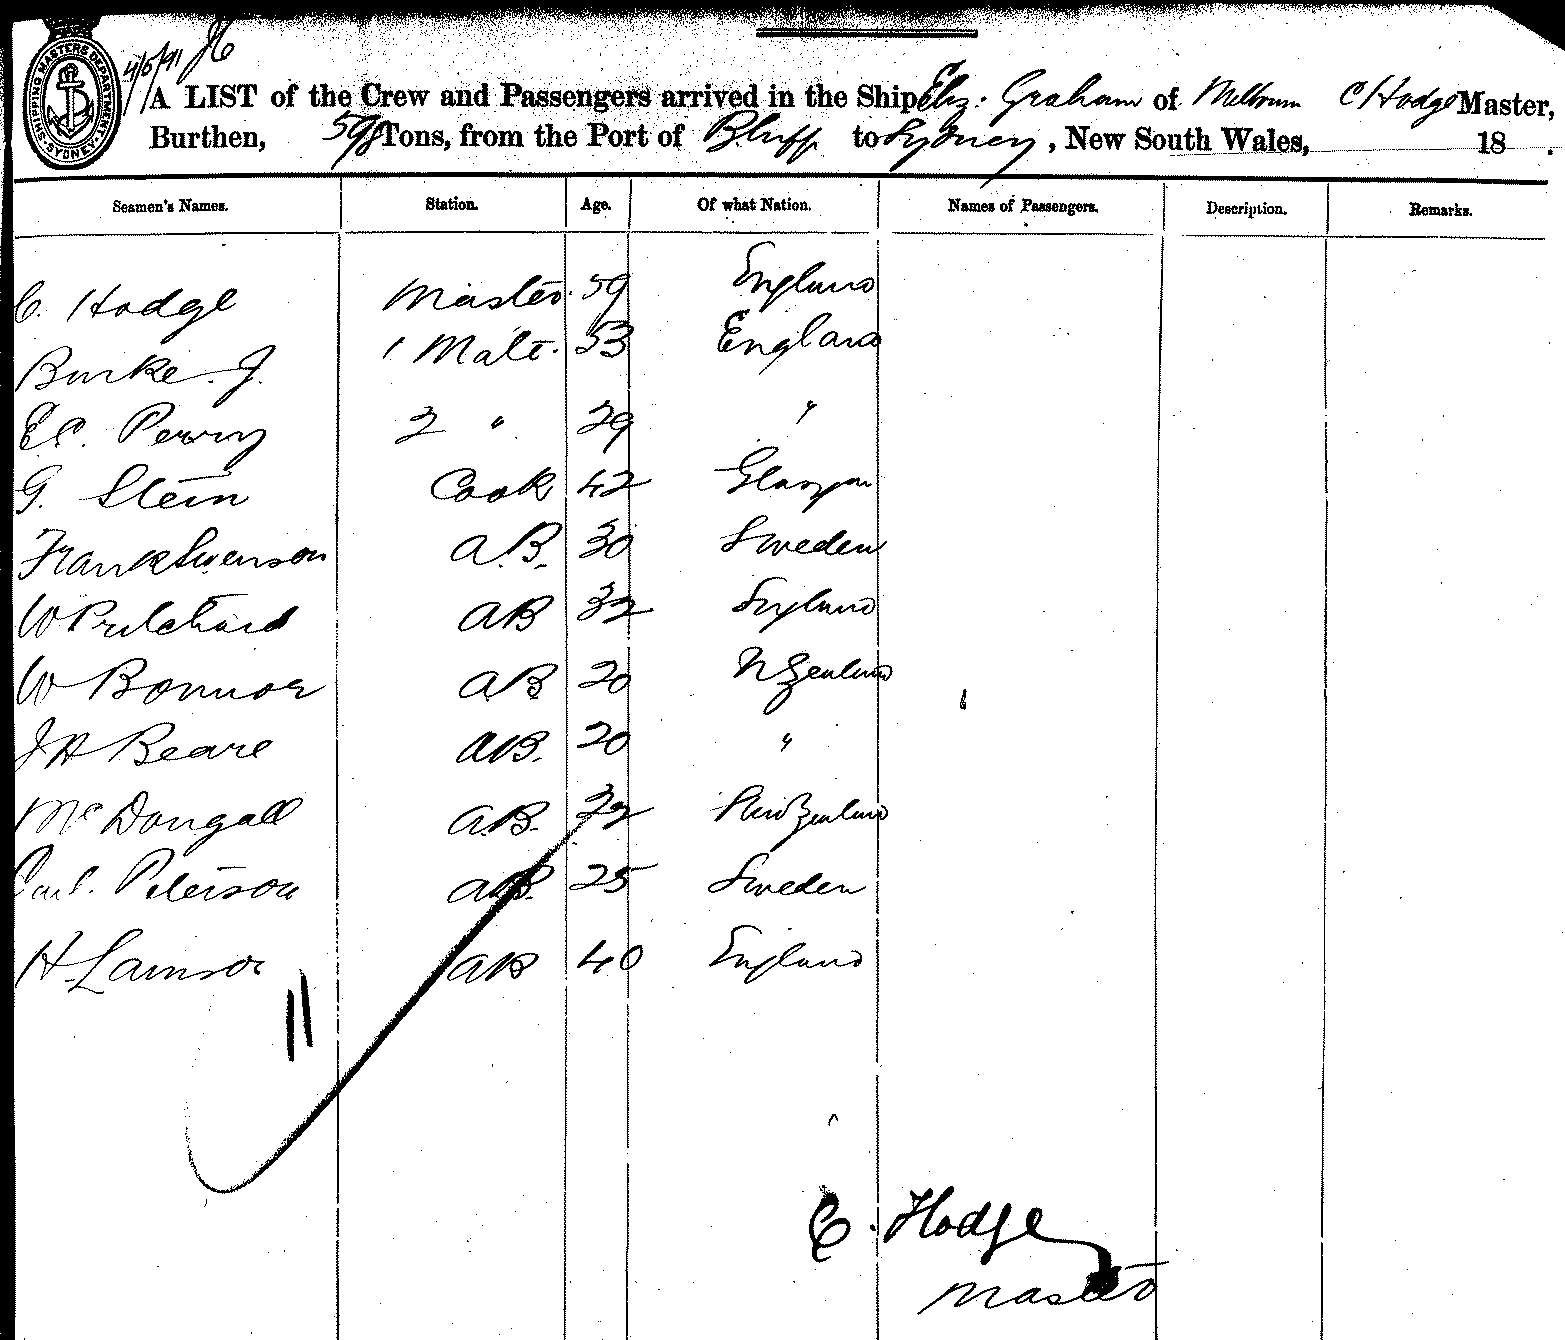 SHIPPING MASTERS DEPARTMENT SYDNEY
4/5/91
A LIST of the Crew and Passengers arrived in the Ship Eliz. Graham of Melbourn C Hodge Master,
Burthen, 598 Tons, from the Port of Bluff to Sydney, New South Wales, 18 .
Seamen's Names. Station. Age. Of what Nation. Names of Passengers. Description. Remarks.
C. Hodge Master. 59 England
Burke. J. 1 Mate. 53 England
E.C. Perry 2 " 29 "
G. Stein Cook 42 Glasgow
Frank Swenson A.B. 30 Sweden
W Pritchard AB 32 England
W Bonnor AB 20 N Zealand
J H Beare AB. 20 "
McDougall A.B. 22 New Zealand
Carl. Peterson AB. 25 Sweden
H Lawson AB 40 England
11
C. Hodge
Master